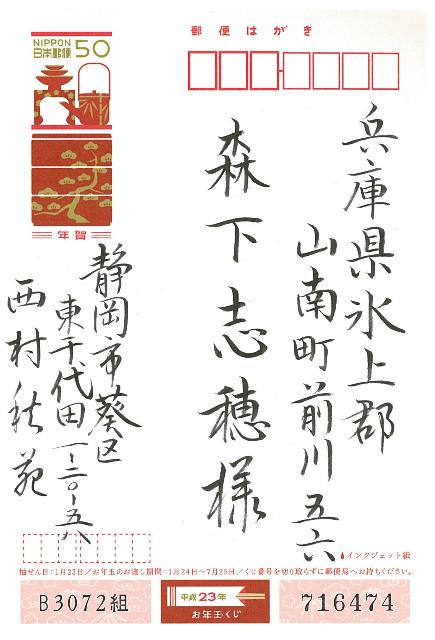 郵便はがき
NIPPON
日本郵便 50
年賀
兵庫県氷上郡
山南町前川五六
森下志穂様
静岡市葵区
東千代田一-二〇-五八
西村秋苑
インクジェット紙
抽せん日：1月23日／お年玉のお渡し期間：1月24日〜7月25日／くじ番号を切り取らずに郵便局へお持ちください。
B3072組
平成23年
お年玉くじ
716474